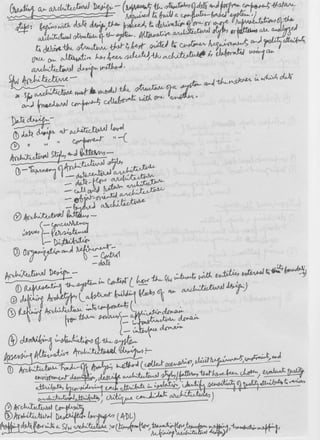 Creating an architectural Design — (represents the structures of data and program components that are
required to build a computer based system)
Steps: begins with data design then proceed to derivation of one or more representations of the
architectural structure of the system. Alternative architectural styles or patterns are analyzed
to derive the structure that is best suited to customer requirements and quality attributes,
once an alternative has been selected, the architecture is elaborated using an
architectural design method.
S/w Architecture —
* S/w architecture model the structure of a system and the manner in which data
and procedural components collaborate with one another.
Data design —
① data design at architectural level
② " " " component "
Architectural Styles and Patterns —
① - Taxonomy of Architectural styles
- datacentered architecture
- data-flow architecture
- call and return architecture
- object-oriented architecture
- layered architecture
② Architectural Patterns —
issues
- Concurrency
- Persistence
- Distribution
③ Organization and refinement -
- Control
- data
Architectural Design —
① Representing the system in Context (how the S/w interacts with entities external to its boundary)
② defining Archetype (abstract building blocks of an architectural design)
③ Refining Architecture into components (
from three sources
- application domain
- infrastructure domain
- interface domain
④ describing instantiations of the system
Assessing Alternative Architectural Designs -
① Architecture Trade-Off Analysis method (collect scenarios, elicit requirements, constraints, and
environment description, describe architectural styles/patterns that have been chosen, evaluate quality
attributes by considering each attribute in isolation, identify sensitivity of quality attributes to various
architectural attributes, critique candidate architectures)
② Architectural Complexity
③ Architectural Description Languages (ADL)
Mapping data flow into a S/w architecture (transform flow, transaction flow, transform mapping, transaction mapping,
refining architectural design)